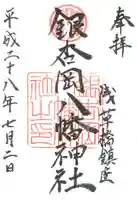 奉拝
浅草橋鎮座
銀杏岡八幡神社
平成二十八年七月二日